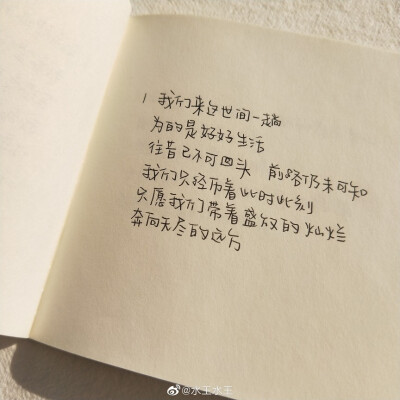 1 我们来这世间一趟
为的是好好生活
往昔已不可回头 前路仍未可知
我们只经历着此时此刻
只愿我们带着盛放的灿烂
奔向无尽的远方
@水玉水王